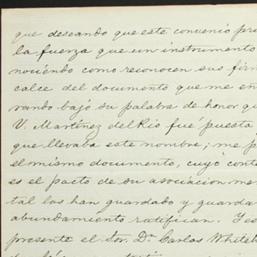 que deseando que este convenio pre
la fuerza que un instrumento
nociendo como reconocen sus firm
calce del documento que me ex
rando bajo su palabra de honor qu
V. Martínez del Rio fué puesta
que llevaba este nombre; me p
el mismo documento, cuyo conte
es el pacto de su asociacion me
tal los han guardado y guarda
abundamiento ratifican. Yes
presente el Sor. Dn. Carlos Whiteh